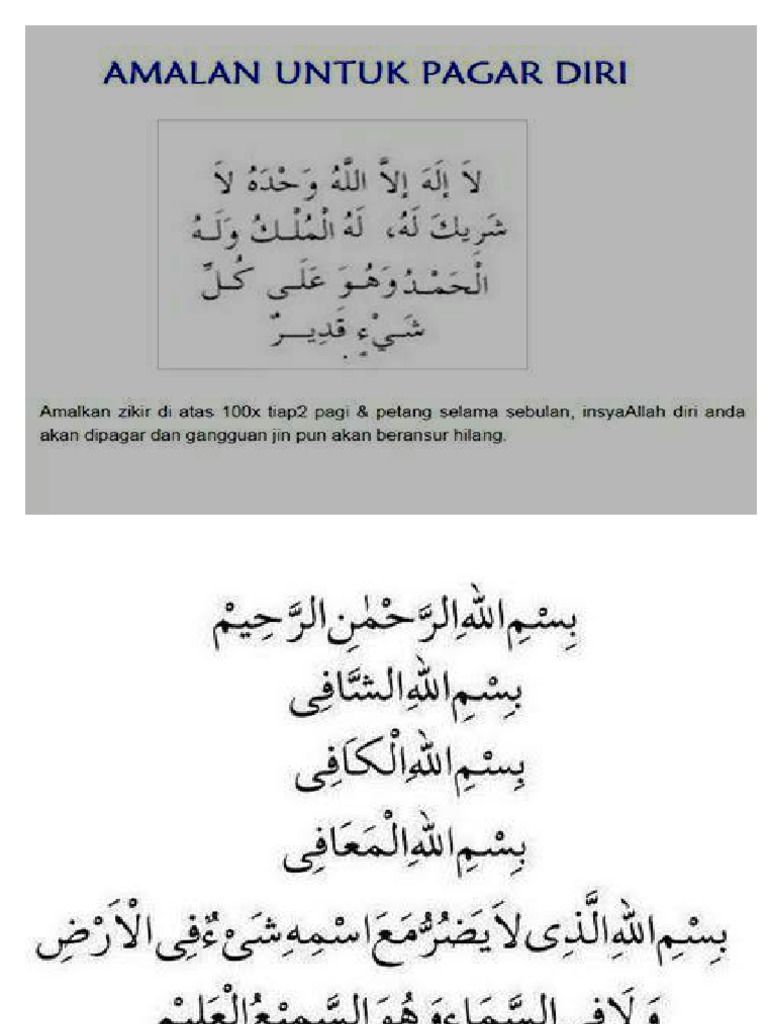 AMALAN UNTUK PAGAR DIRI
لاَ إِلَهَ إِلاَّ اللَّهُ وَحْدَهُ لاَ
شَرِيكَ لَهُ، لَهُ الْمُلْـكُ وَلَـهُ
الْحَمْـدُ وَهُـوَ عَلَـى كُـلِّ
شَـيْءٍ قَدِيـرٌ
Amalkan zikir di atas 100x tiap2 pagi & petang selama sebulan, insyaAllah diri anda
akan dipagar dan gangguan jin pun akan beransur hilang.
بِسْمِ اللهِ الرَّحْمٰنِ الرَّحِيمْ
بِسْمِ اللهِ الشَّافِى
بِسْمِ اللهِ الْكَافِى
بِسْمِ اللهِ الْمَعَافِى
بِسْمِ اللهِ الَّذِى لاَ يَضُرُّ مَعَ اسْمِهِ شَىْءٌ فِى الْاَرْضِ
وَلَا فِى السَّمَاءِ وَهُوَ السَّمِيْعُ الْعَلِيْمْ